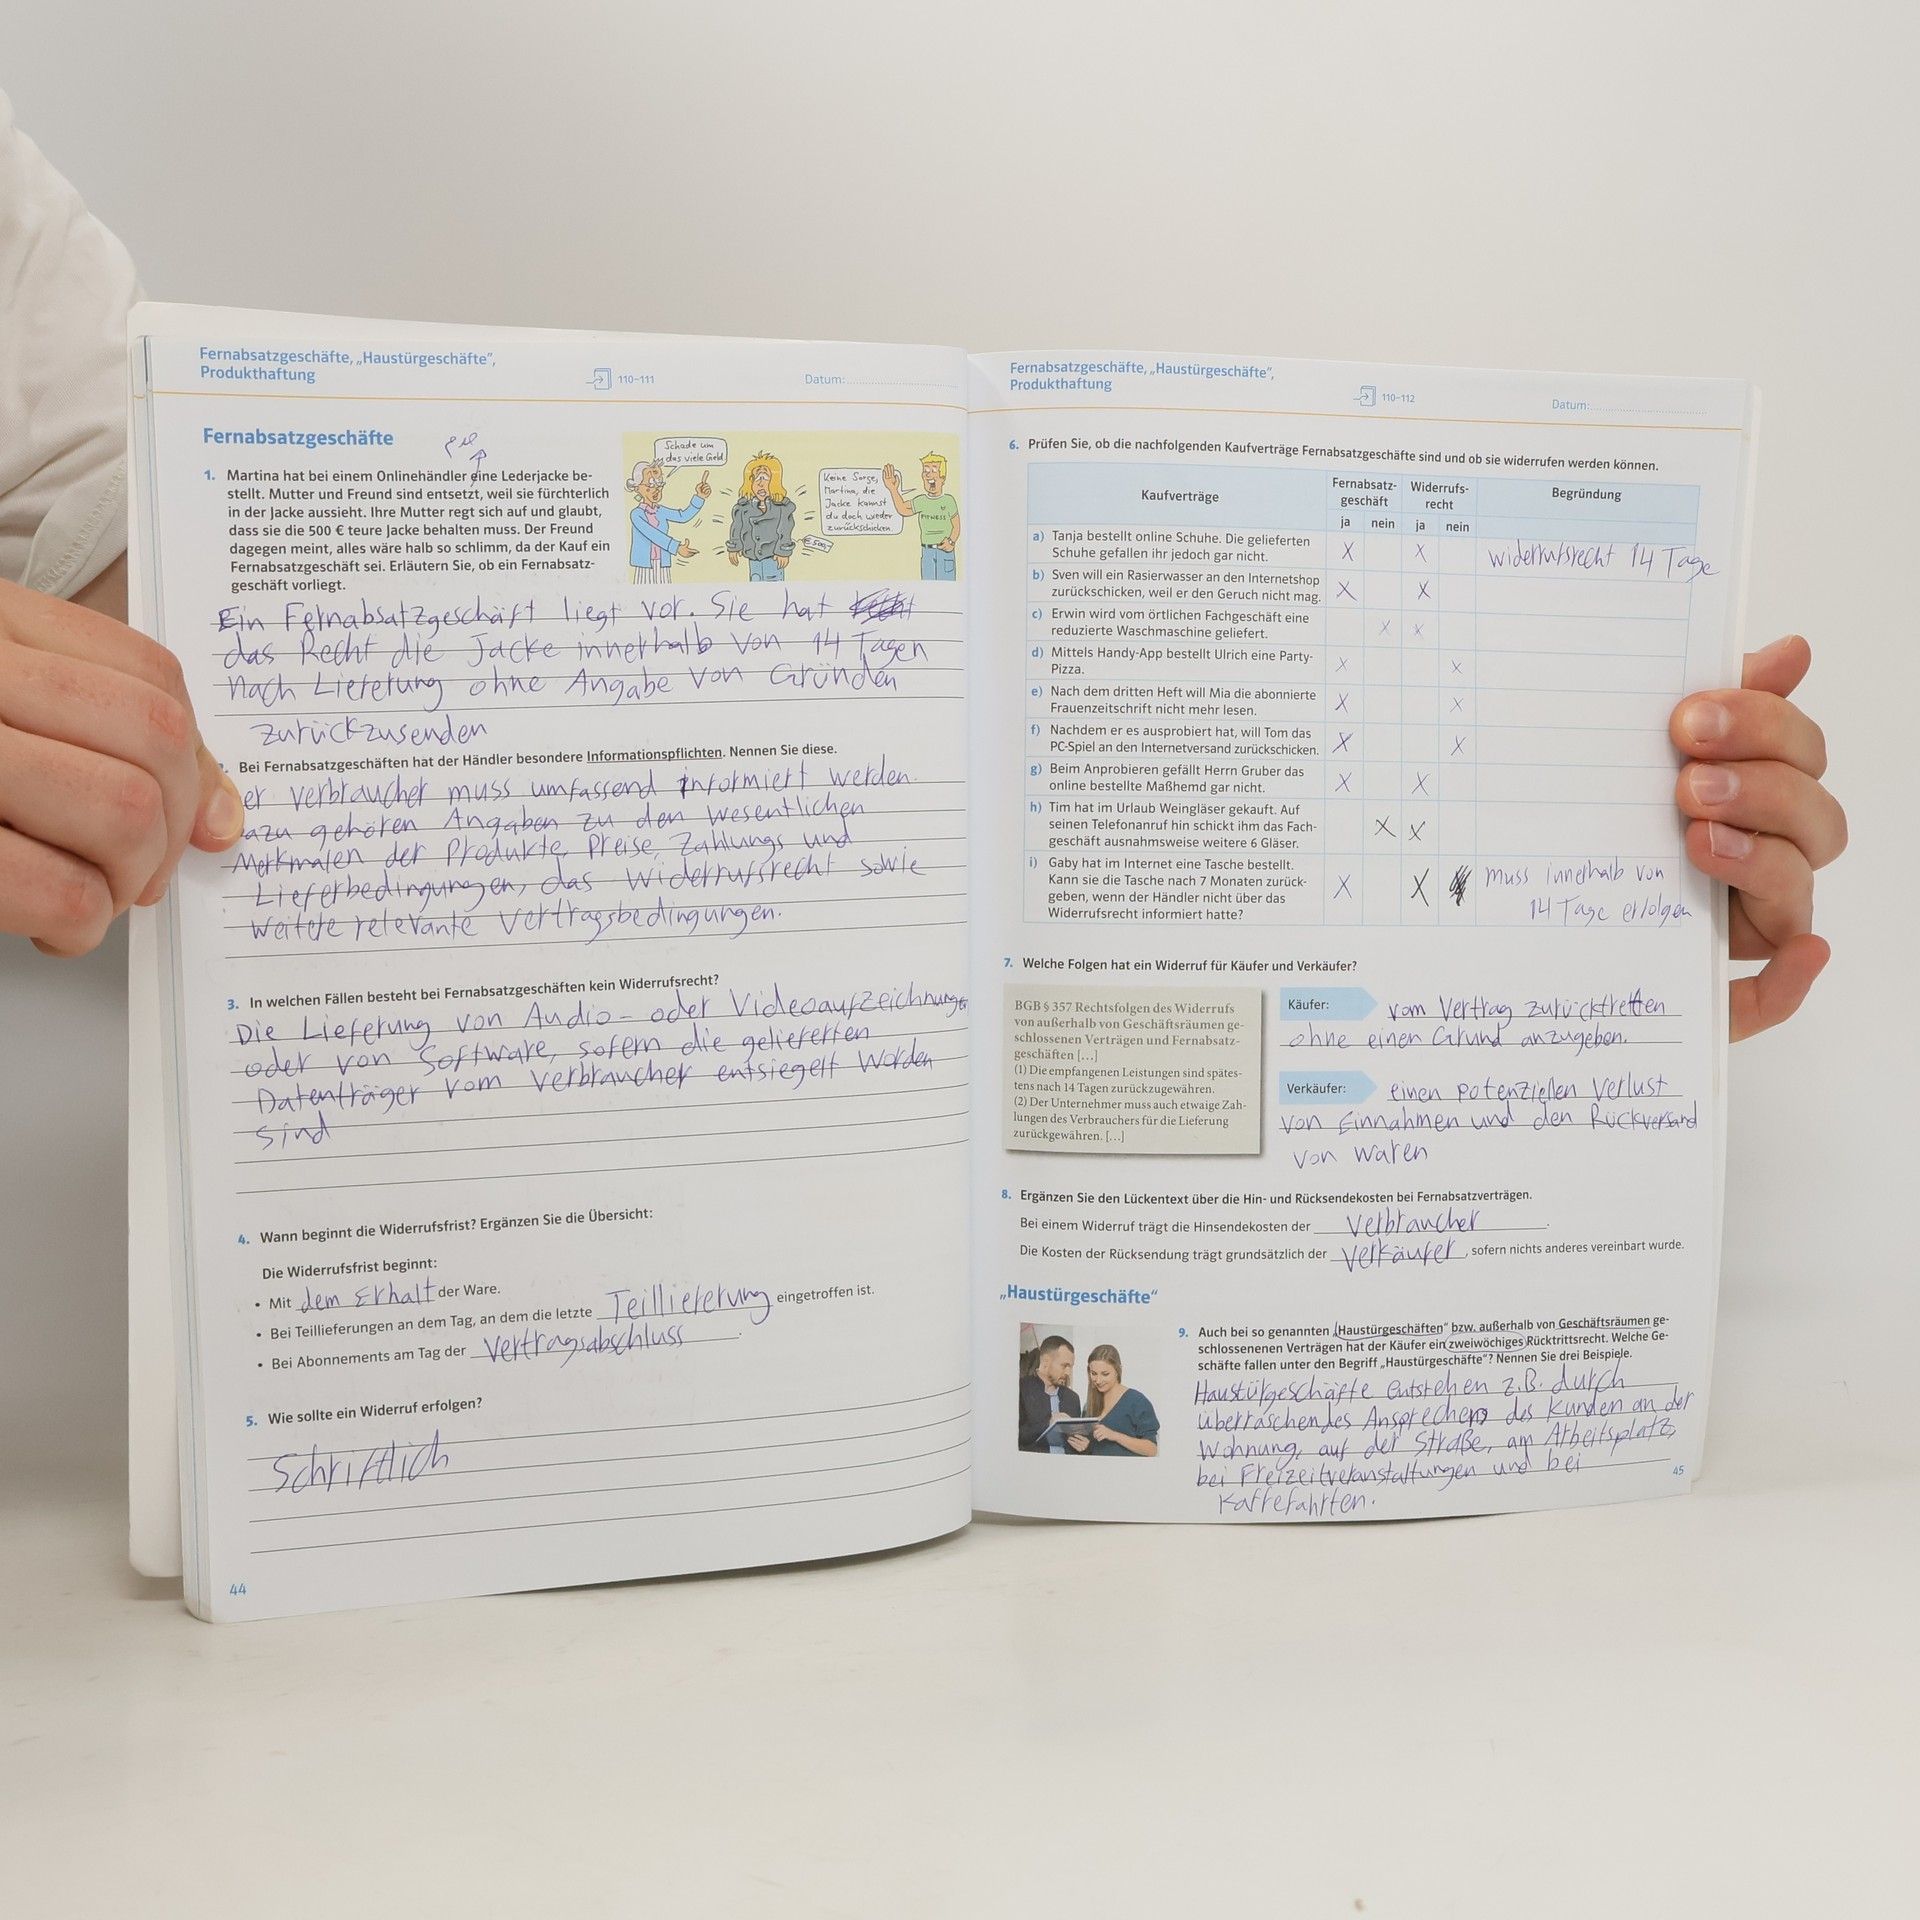 Fernabsatzgeschäfte, „Haustürgeschäfte“,
Produkthaftung
110–111
Datum:
Fernabsatzgeschäfte
1. Martina hat bei einem Onlinehändler eine Lederjacke be-
stellt. Mutter und Freund sind entsetzt, weil sie fürchterlich
in der Jacke aussieht. Ihre Mutter regt sich auf und glaubt,
dass sie die 500 € teure Jacke behalten muss. Der Freund
dagegen meint, alles wäre halb so schlimm, da der Kauf ein
Fernabsatzgeschäft sei. Erläutern Sie, ob ein Fernabsatz-
geschäft vorliegt.
Schade um
das viele Geld.
Keine Sorge,
Martina, die
Jacke kannst
du doch wieder
zurückschicken.
FITNESS
€ 500,-
Ein Fernabsatzgeschäft liegt vor. Sie hat
das Recht die Jacke innerhalb von 14 Tagen
nach Lieferung ohne Angabe von Gründen
zurückzusenden
. Bei Fernabsatzgeschäften hat der Händler besondere Informationspflichten. Nennen Sie diese.
er Verbraucher muss umfassend informiert werden.
azu gehören Angaben zu den wesentlichen
Merkmalen der Produkte, Preise, Zahlungs und
Lieferbedingungen, das Widerrufsrecht sowie
weitere relevante Vertragsbedingungen.
3. In welchen Fällen besteht bei Fernabsatzgeschäften kein Widerrufsrecht?
Die Lieferung von Audio- oder Videoaufzeichnungen
oder von Software, sofern die gelieferten
Datenträger vom Verbraucher entsiegelt worden
sind
4. Wann beginnt die Widerrufsfrist? Ergänzen Sie die Übersicht:
Die Widerrufsfrist beginnt:
• Mit dem Erhalt der Ware.
• Bei Teillieferungen an dem Tag, an dem die letzte Teillieferung eingetroffen ist.
• Bei Abonnements am Tag der Vertragsabschluss.
5. Wie sollte ein Widerruf erfolgen?
Schriftlich
44
Fernabsatzgeschäfte, „Haustürgeschäfte“,
Produkthaftung
110–112
Datum:
6. Prüfen Sie, ob die nachfolgenden Kaufverträge Fernabsatzgeschäfte sind und ob sie widerrufen werden können.
Kaufverträge
Fernabsatz-
geschäft
Widerrufs-
recht
Begründung
ja nein ja nein
a) Tanja bestellt online Schuhe. Die gelieferten
Schuhe gefallen ihr jedoch gar nicht.
X X
widerrufsrecht 14 Tage
b) Sven will ein Rasierwasser an den Internetshop
zurückschicken, weil er den Geruch nicht mag.
X X
c) Erwin wird vom örtlichen Fachgeschäft eine
reduzierte Waschmaschine geliefert.
X X
d) Mittels Handy-App bestellt Ulrich eine Party-
Pizza.
X X
e) Nach dem dritten Heft will Mia die abonnierte
Frauenzeitschrift nicht mehr lesen.
X X
f) Nachdem er es ausprobiert hat, will Tom das
PC-Spiel an den Internetversand zurückschicken.
X X
g) Beim Anprobieren gefällt Herrn Gruber das
online bestellte Maßhemd gar nicht.
X X
h) Tim hat im Urlaub Weingläser gekauft. Auf
seinen Telefonanruf hin schickt ihm das Fach-
geschäft ausnahmsweise weitere 6 Gläser.
X X
i) Gaby hat im Internet eine Tasche bestellt.
Kann sie die Tasche nach 7 Monaten zurück-
geben, wenn der Händler nicht über das
Widerrufsrecht informiert hatte?
X X
muss innerhalb von
14 Tage erfolgen
7. Welche Folgen hat ein Widerruf für Käufer und Verkäufer?
BGB § 357 Rechtsfolgen des Widerrufs
von außerhalb von Geschäftsräumen ge-
schlossenen Verträgen und Fernabsatz-
geschäften [...]
(1) Die empfangenen Leistungen sind spätes-
tens nach 14 Tagen zurückzugewähren.
(2) Der Unternehmer muss auch etwaige Zah-
lungen des Verbrauchers für die Lieferung
zurückgewähren. [...]
Käufer: vom Vertrag zurücktretten
ohne einen Grund anzugeben.
Verkäufer: einen potenziellen Verlust
von Einnahmen und den Rückversand
von waren
8. Ergänzen Sie den Lückentext über die Hin- und Rücksendekosten bei Fernabsatzverträgen.
Bei einem Widerruf trägt die Hinsendekosten der Verbraucher.
Die Kosten der Rücksendung trägt grundsätzlich der Verkäufer, sofern nichts anderes vereinbart wurde.
„Haustürgeschäfte“
9. Auch bei so genannten „Haustürgeschäften“ bzw. außerhalb von Geschäftsräumen ge-
schlossenenen Verträgen hat der Käufer ein zweiwöchiges Rücktrittsrecht. Welche Ge-
schäfte fallen unter den Begriff „Haustürgeschäfte“? Nennen Sie drei Beispiele.
Haustürgeschäfte entstehen z.B. durch
überraschendes Ansprechen des Kunden an der
Wohnung, auf der Straße, am Arbeitsplatz,
bei Freizeitveranstaltungen und bei
Kaffefahrten.
45